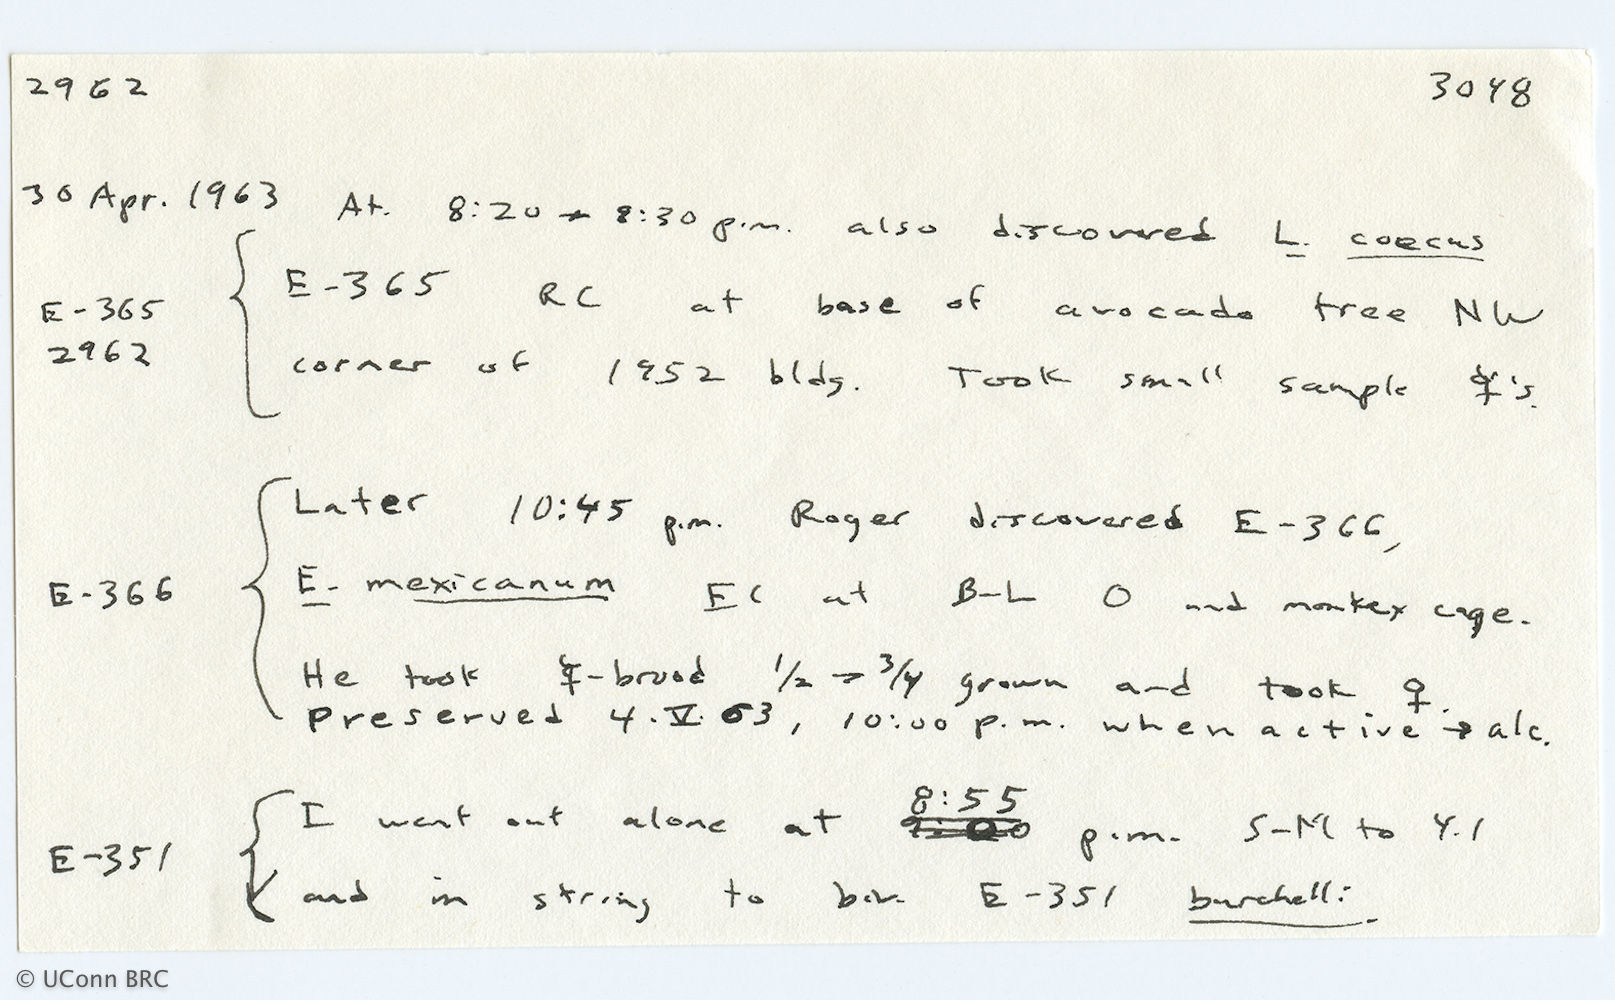 2962 3048
30 Apr. 1963 At. 8:20 → 8:30 p.m. also discovered L. coecus
E-365 RC at base of avocado tree NW
E-365
2962
corner of 1952 bldg. Took small sample ☿'s.
Later 10:45 p.m. Roger discovered E-366,
E-366
E. mexicanum EC at B-L O and monkey cage.
He took ☿-brood 1/2 → 3/4 grown and took ♀.
Preserved 4.V.63, 10:00 p.m. when active → alc.
I went out alone at 8:55 p.m. S-M to 4.1
E-351
and in string to biv. E-351 burchelli.
© UConn BRC